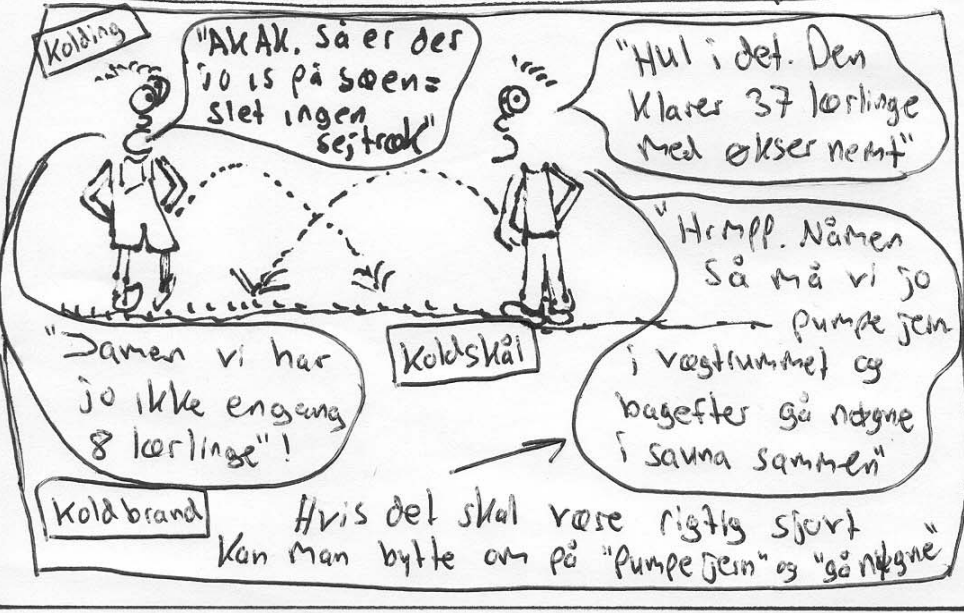 Kolding
"AK AK. Så er der
jo is på søen=
slet ingen
sejtræk"
"Hul i det. Den
klarer 37 kærlinge
med økser nemt"
"Jamen vi har
jo ikke engang
8 kærlinge"!
Koldskål
"Hrmpf. Nåmen
så må vi jo
pumpe jern
i vægtrummet og
bagefter gå nøgne
i sauna sammen"
Koldbrand
Hvis det skal være rigtig sjovt
kan man bytte om på "pumpe jern" og "gå nøgne"